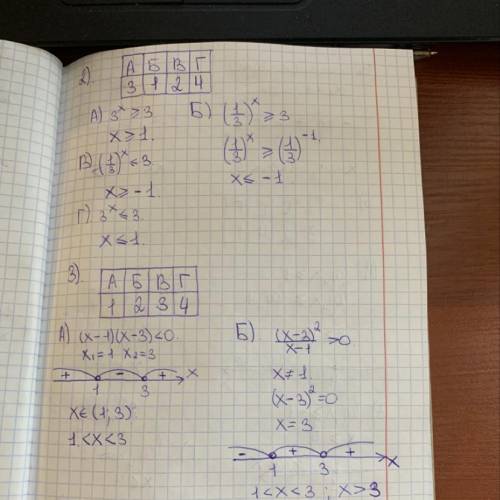 2)
А Б В Г
3 1 2 4
А) 3ˣ ≥ 3
x ≥ 1.
Б) (1/3)ˣ ≥ 3
(1/3)ˣ ≥ (1/3)⁻¹
x ≤ -1
В) (1/3)ˣ ≤ 3
x ≥ -1.
Г) 3ˣ ≤ 3
x ≤ 1.
3)
А Б В Г
1 2 3 4
А) (x-1)(x-3)<0
x₁=1 x₂=3
+ - + x
1 3
x∈(1; 3)
1<x<3
Б) (x-3)²/(x-1) >0
x≠1
(x-3)²=0
x=3
- + + x
1 3
1<x<3 ; x>3